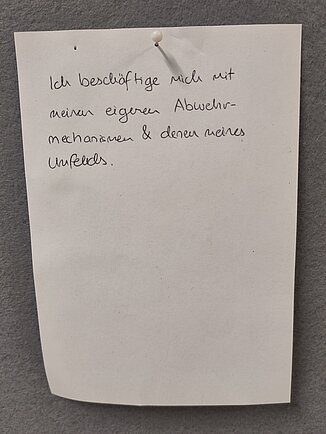 Ich beschäftige mich mit
meinen eigenen Abwehr-
mechanismen & denen meines
Umfelds.